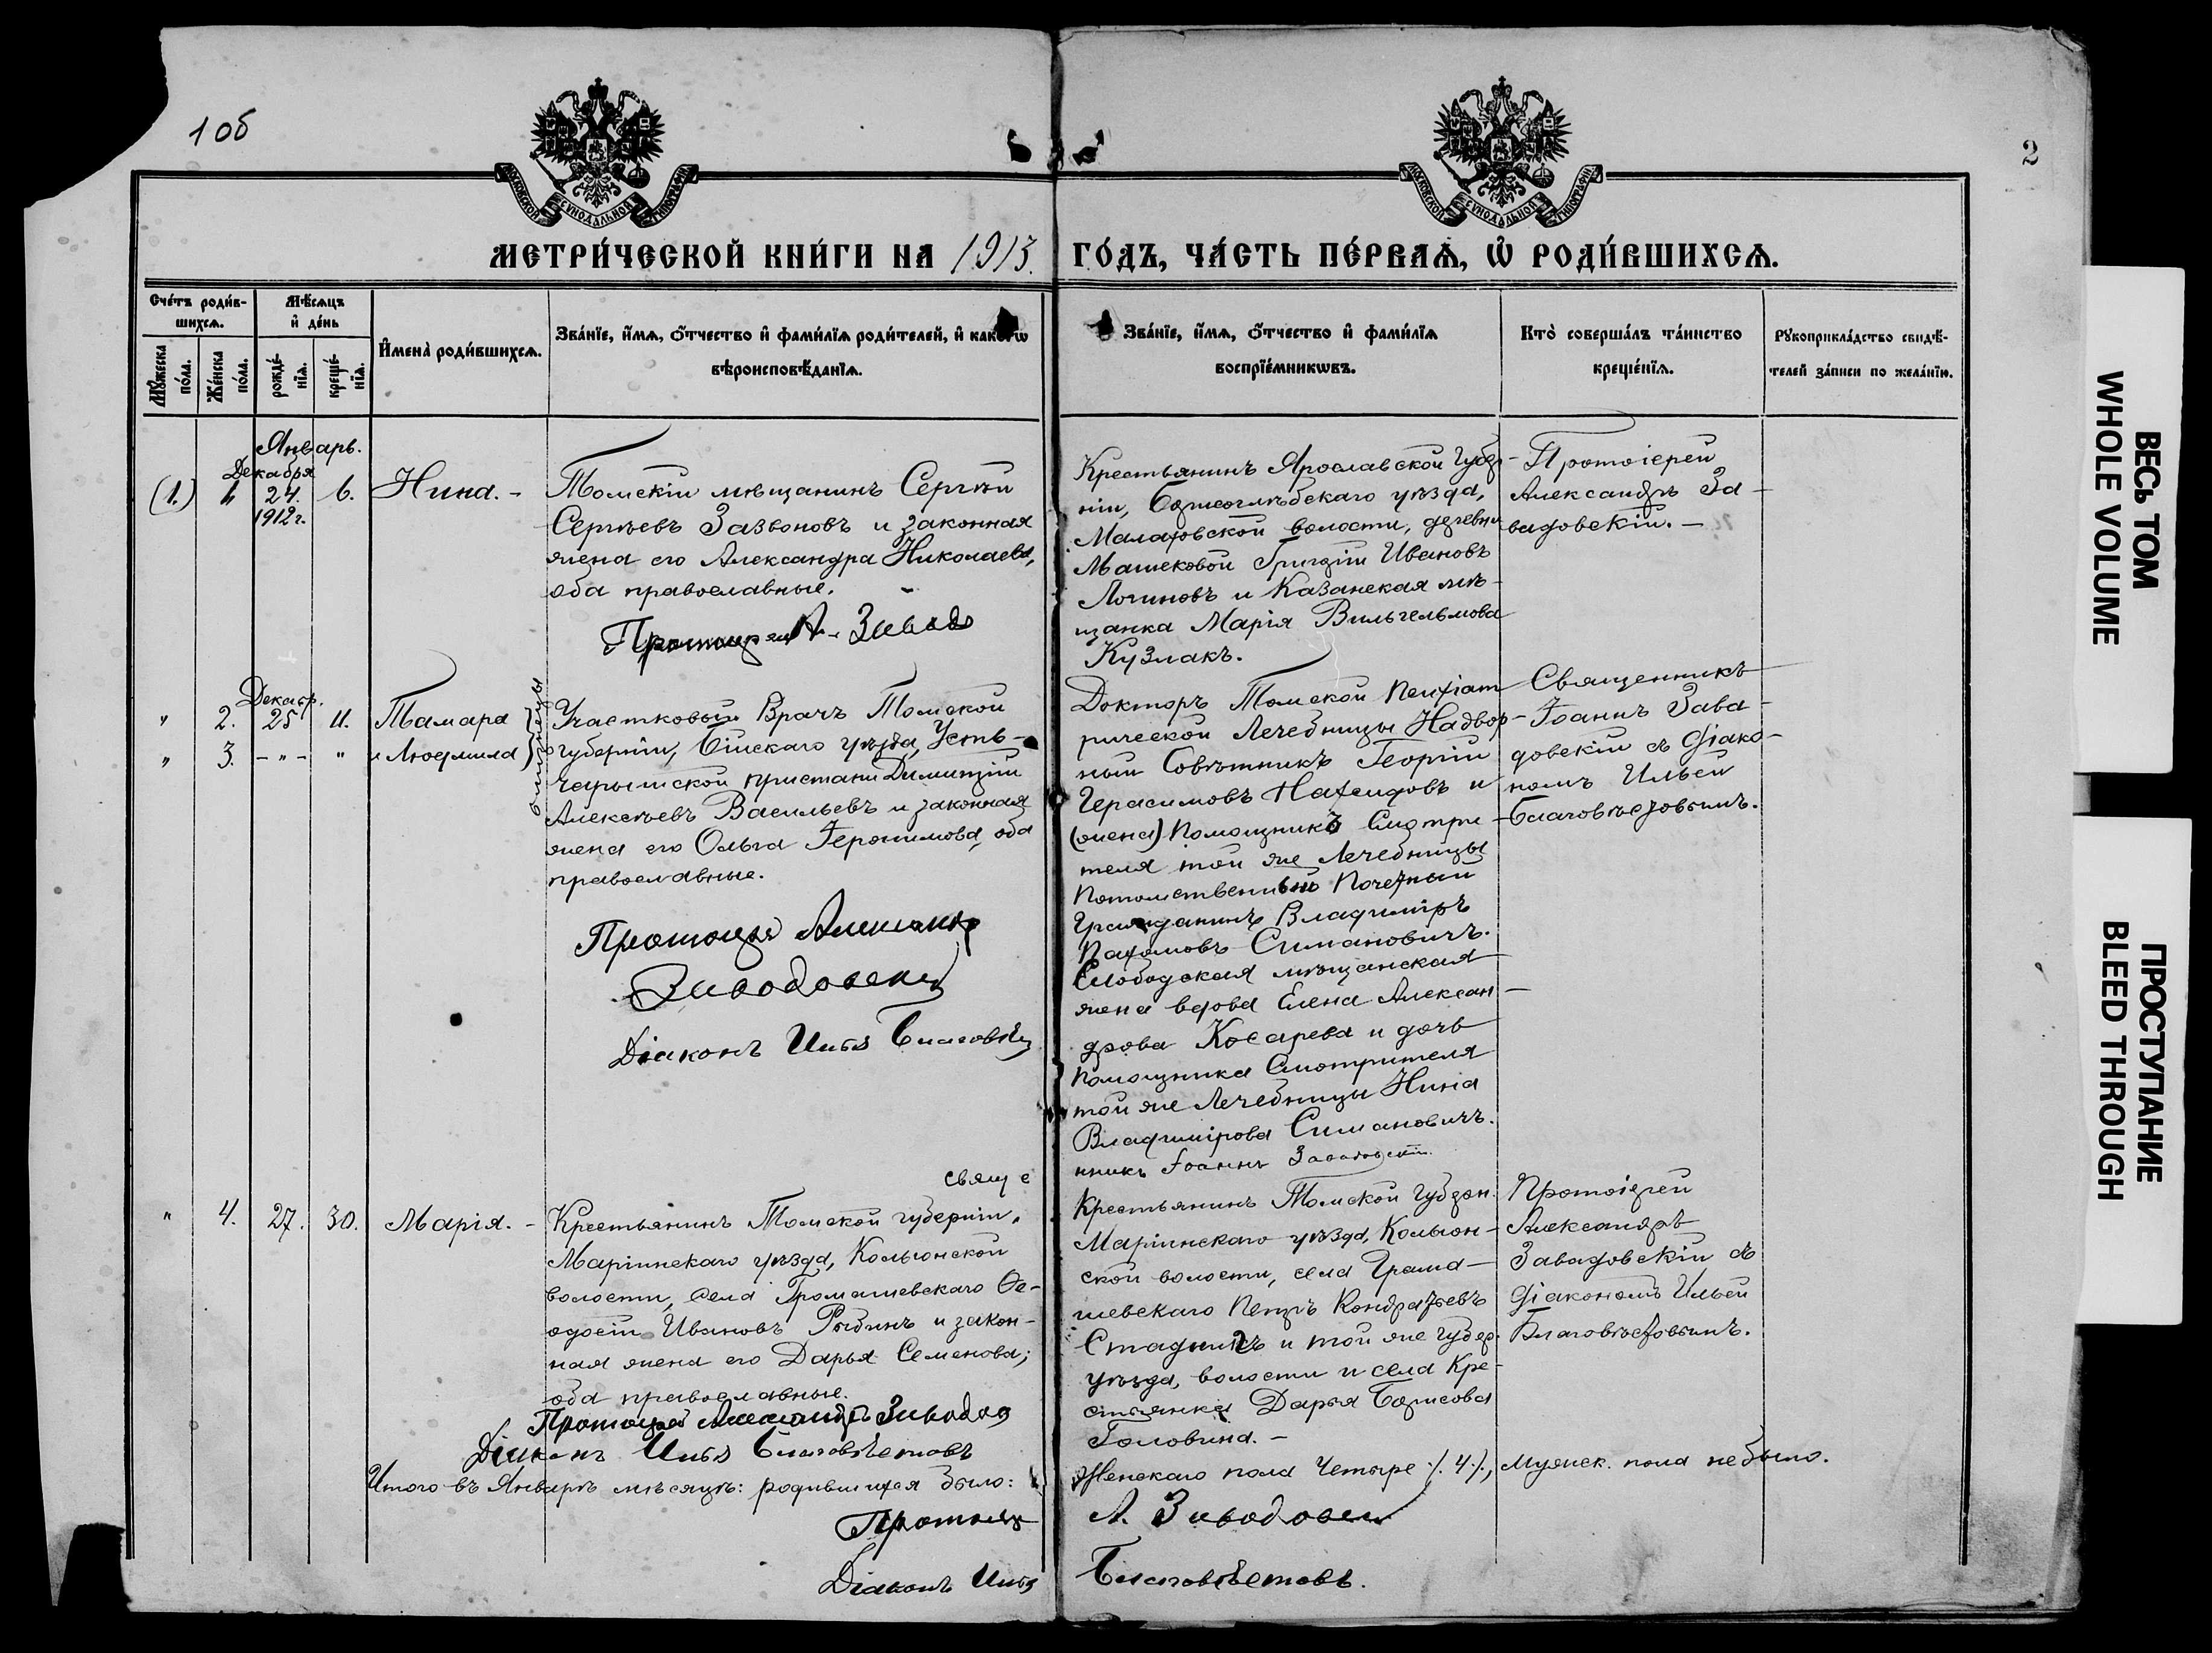 1 об
2
МОСКОВСКОЙ СУНОДАЛЬНОЙ ТИПОГРАФІИ
МОСКОВСКОЙ СУНОДАЛЬНОЙ ТИПОГРАФІИ
МЕТРИ́ЧЕСКОЙ КНИ́ГИ НА 1913. ГО́ДЪ, ЧА́СТЬ ПЕ́РВАѦ, Ѽ РОДИ́ВШИХСѦ.
Сче́тъ роди́в-
шихсѧ.
Мѣ́сѧцъ
и҆ де́нь
Мꙋ́жеска
по́ла.
Же́нска
по́ла.
рожде́-
нїѧ.
креще́-
нїѧ.
И҆мена̀ роди́вшихсѧ.
Зва́нїе, и҆́мѧ, ѻ҆́тчество и҆ фами́лїѧ роди́телей, и҆ како́гѡ
вѣроисповѣ́данїѧ.
Зва́нїе, и҆́мѧ, ѻ҆́тчество и҆ фами́лїѧ
воспрїе́мникѡвъ.
Кто̀ соверша́лъ та́инство
креще́нїѧ.
Рꙋкоприкла́дство свидѣ́-
телей за́писи по жела́нїю.
Январь.
Декабря
(1.) 1 24. 6. Нина. -
1912 г.
Томскій мѣщанинъ Сергѣй
Сергѣевъ Зазвоновъ и законная
жена его Александра Николаева,
оба православные.
Протоіерей А. Завадо
Крестьянинъ Ярославской Губер-
ніи, Борисоглѣбскаго уѣзда,
Малаховской волости, деревни
Машековой Григорій Ивановъ
Логиновъ и Казанская мѣ-
щанка Марія Вильгельмова
Кузмакъ.
Протоіерей
Александръ За-
вадовскій. -
Декабр.
" 2. 25 11. Тамара
" 3. - " - " и Людмила
близнецы
Участковый Врачъ Томской
губерніи, Бійскаго уѣзда, Усть-
Чарышской пристани Димитрій
Алексѣевъ Васильевъ и законная
жена его Ольга Іеронимова, оба
православные.
Протоіерей Александр
Завадовскій
Діаконъ Илья Благовѣщ
Докторъ Томской Психіат-
рической Лечебницы Надвор-
ный Совѣтникъ Георгій
Герасимовъ Нахсидовъ и
(жена) Помощникъ Смотри-
теля той же Лечебницы
Потомственный Почетный
Гражданинъ Владиміръ
Пахомовъ Симановичъ.
Слободская мѣщанская
жена вдова Елена Алексан-
дрова Косарева и дочь
Помощника Смотрителя
той же Лечебницы Нина
Владимірова Симановичъ.
свяще нникъ Іоаннъ Завадовскій.
Священникъ
Іоаннъ Зава-
довскій съ Діако-
номъ Ильей
Благовѣстовымъ.
" 4. 27. 30. Марія. -
Крестьянинъ Томской губерніи,
Маріинскаго уѣзда, Колыонской
волости, села Громашевскаго Ѳе-
одосій Ивановъ Рыбинъ и закон-
ная жена его Дарья Семенова;
оба православные.
Протоіерей Александръ Завадов
Діаконъ Илья Благовѣстовъ
Крестьянинъ Томской Губерн.
Маріинскаго уѣзда, Колыон-
ской волости, села Грома-
шевскаго Петръ Кондратьевъ
Стадникъ и той же губер.
уѣзда, волости и села Кре-
стьянка Дарья Борисова
Головина. -
Протоіерей
Александръ
Завадовскій съ
Діакономъ Ильей
Благовѣстовымъ.
Итого въ Январѣ мѣсяцѣ: родившихся было: Женскаго пола Четыре /. 4 /., Мужск. пола не было.
Протоіер А. Завадовск
Діаконъ Илья Благовѣстовъ.
ВЕСЬ ТОМ
WHOLE VOLUME
ПРОСТУПАНИЕ
BLEED THROUGH